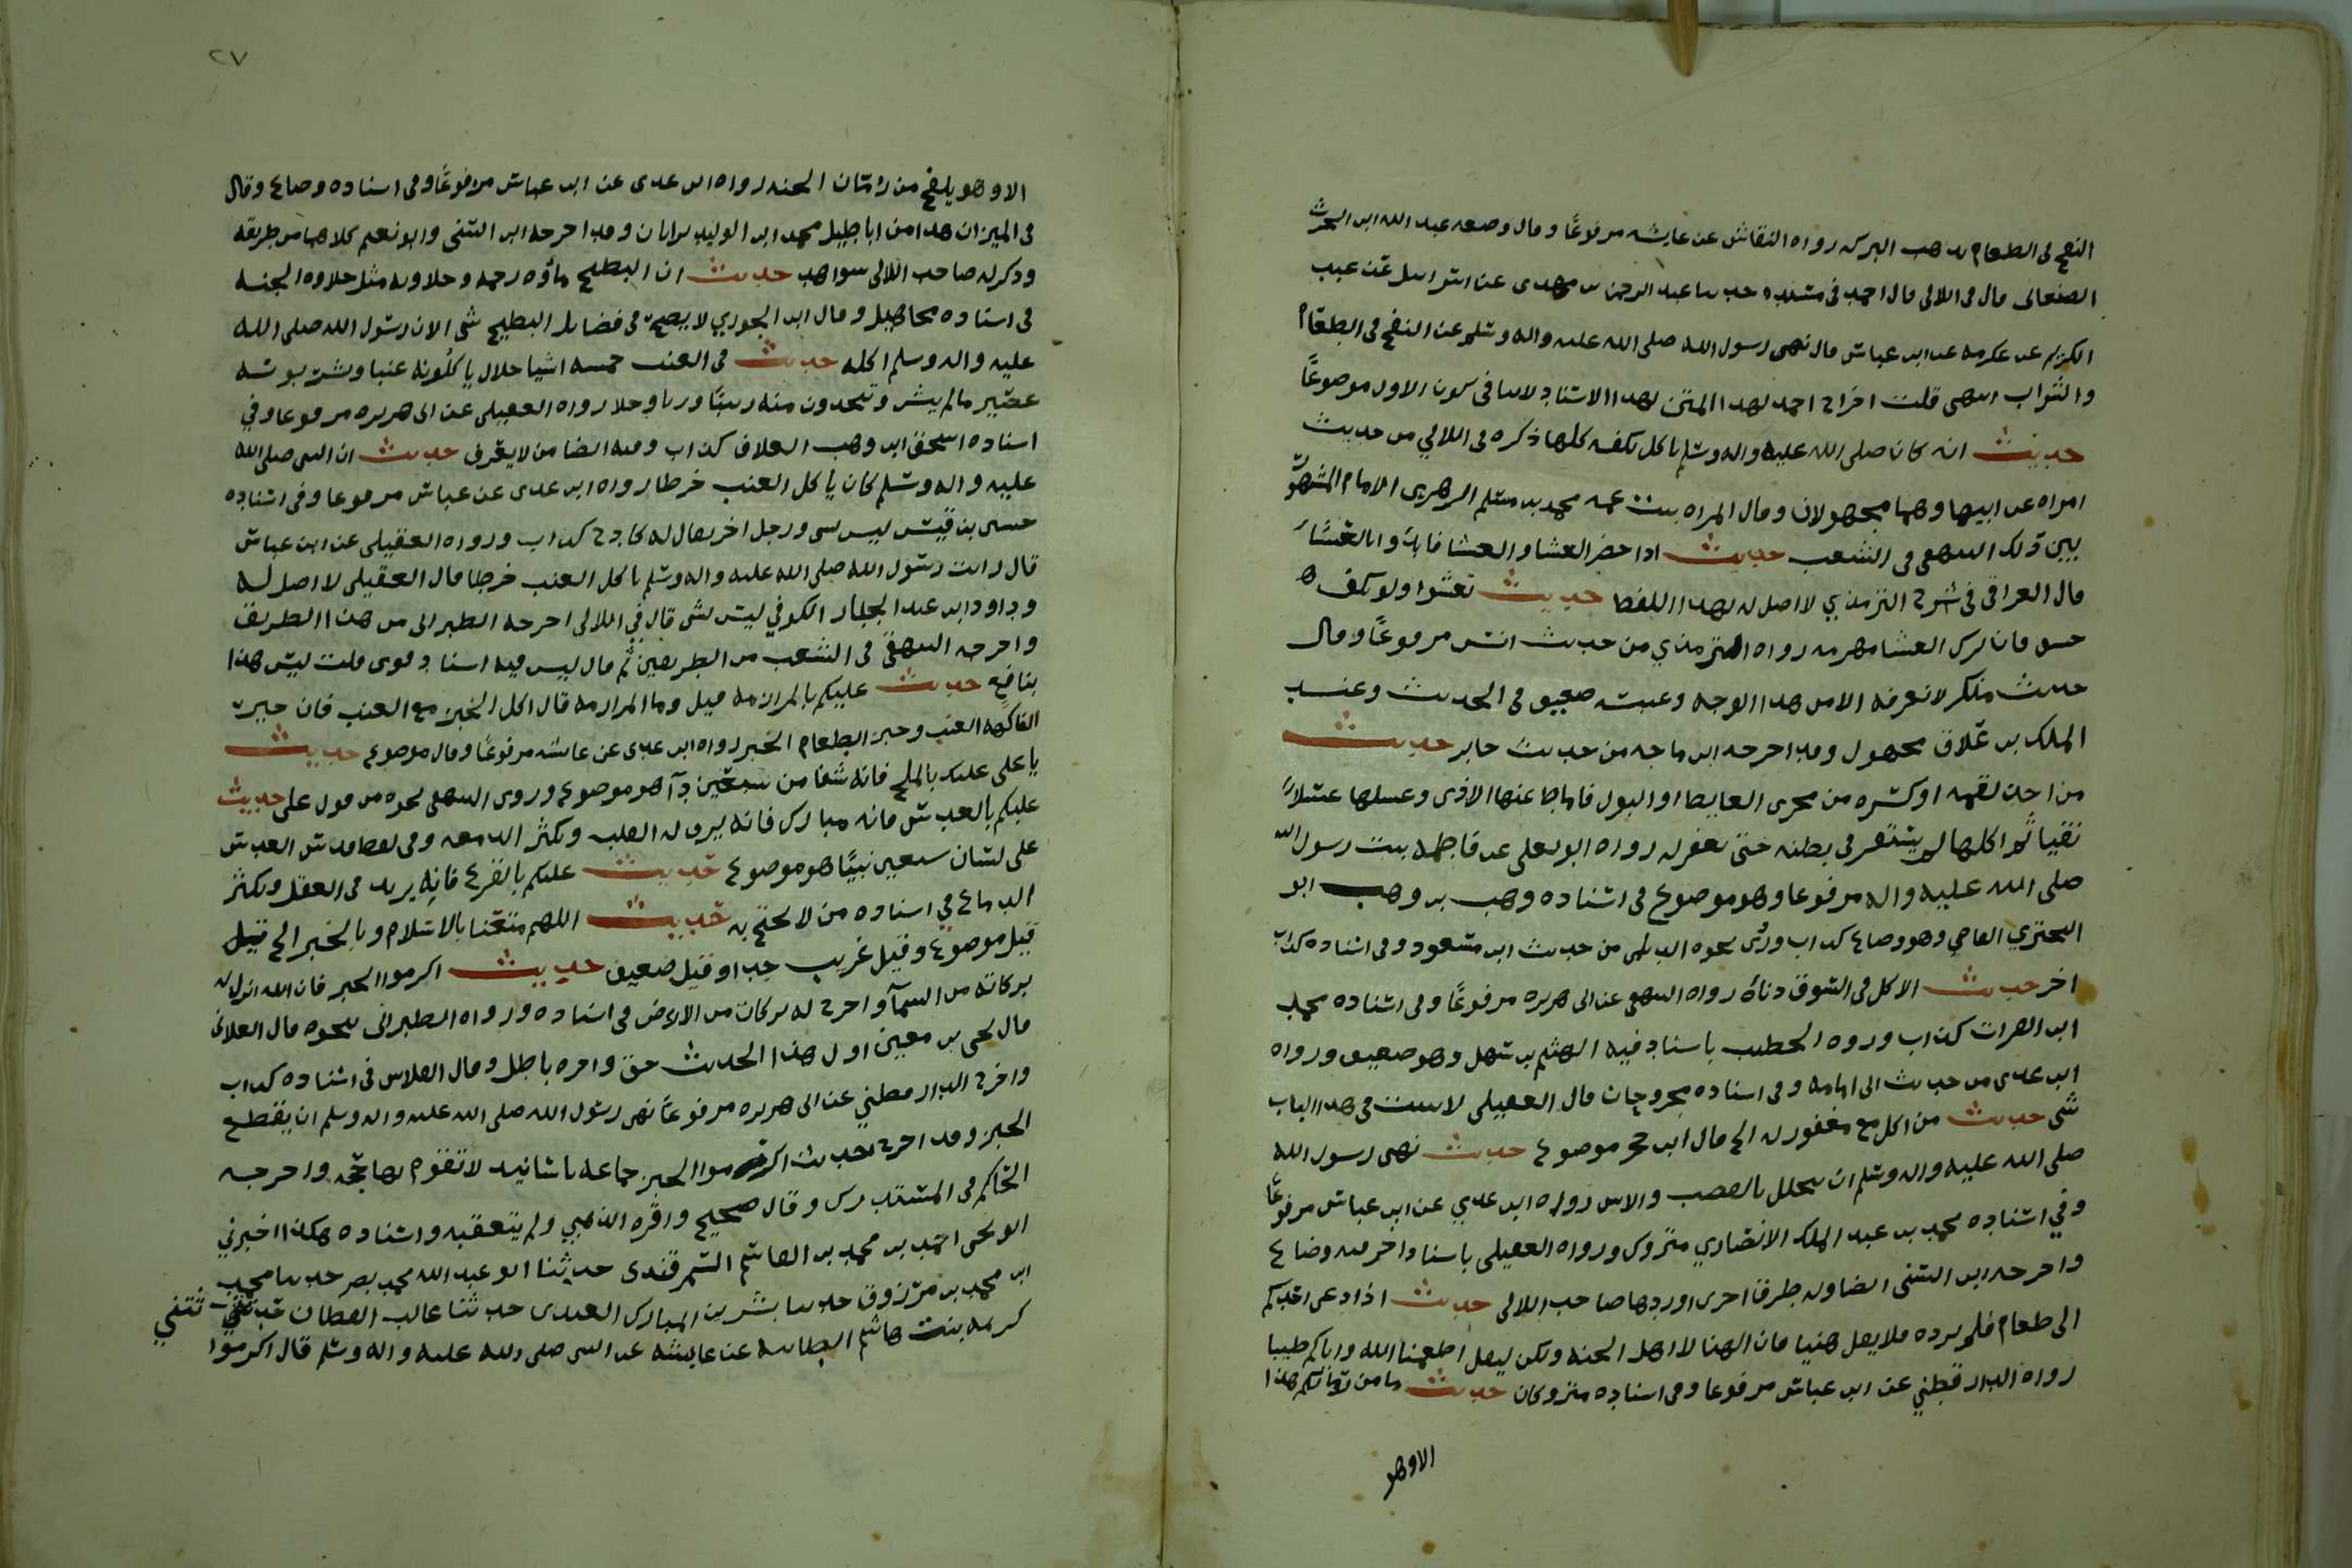 النفخ في الطعام يذهب البركه رواه النقاش عن عايشه مرفوعًا وقال وضعه عبد الله ابن الحرث
الصنعاني قال في اللالي قال احمد في مسنده حدثنا عبد الرحمن بن مهدي عن اسراييل عن عبد
الكريم عن عكرمه عن ابن عباس قال نهى رسول الله صلى الله عليه واله وسلم عن النفخ في الطعام
والشراب انتهى قلت اخراج احمد لهذا المتن بهذا الاسناد لا ينافي كون الاول موضوعًا
حديث انه كان صلى الله عليه واله وسلم ياكل بكفه كلها ذكره في اللالي من حديث
امراه عن ابيها وهما مجهولان وقال المراه بنت عمه محمد بن مسلم الزهري الامام المشهور
بين ذلك البيهقي في الشعب حديث اذا حضر العشا والعشا فابدوا بالعشاء
قال العراقي في شرح الترمذي لا اصل له بهذا اللفظ حديث تعشوا ولو بكف
حشو فان ترك العشا مهرمه رواه الترمذي من حديث انس مرفوعًا وقال
حديث منكر لا نعرفه الا من هذا الوجه وعنبسه ضعيف في الحديث وعبد
الملك بن علاق مجهول وقد اخرجه ابن ماجه من حديث جابر حديث
من اخذ لقمه او كسره من مجرى الغايط او البول فاماط عنها الاذى وغسلها غسلاً
نقيا ثم اكلها لم يستقر في بطنه حتى يغفر له رواه ابو يعلى عن فاطمه بنت رسول الله
صلى الله عليه واله مرفوعا وهو موضوع في اسناده وهب بن وهب ابو
البختري القاضي وهو وضاع كذاب وروى نحوه الديلمي من حديث ابن مسعود وفي اسناده كذاب
اخر حديث الاكل في السوق دناءة رواه البيهقي عن ابي هريره مرفوعًا وفي اسناده محمد
ابن الفرات كذاب ورواه الخطيب باسناد فيه الهيثم بن سهل وهو ضعيف ورواه
ابن عدي من حديث ابي امامه وفي اسناده مجروحان قال العقيلي لا يثبت في هذا الباب
شي حديث من اكل مع مغفور له الخ قال ابن حجر موضوع حديث نهى رسول الله
صلى الله عليه واله وسلم ان يخلل بالقصب والاس رواه ابن عدي عن ابن عباس مرفوعًا
وفي اسناده محمد بن عبد الملك الانصاري متروك ورواه العقيلي باسناد اخر فيه وضاع
واخرجه ابن السني ايضا وله طرق اخرى اوردها صاحب اللالي حديث اذا دعي احدكم
الى طعام فلم يرده فلا يقل هنيا فان الهنا لاهل الجنه ولكن ليقل اطعمنا الله واياكم طيبا
رواه الدارقطني عن ابن عباس مرفوعا وفي اسناده متروكان حديث ما من رمانكم هذا
الا وهو
٢٧
الا وهو يلقح من رمان الجنه رواه ابن عدي عن ابن عباس مرفوعًا وفي اسناده وضاع وقال
في الميزان هذا من اباطيل محمد ابن الوليد بن ابان وقد اخرجه ابن السني وابو نعيم كلاهما من طريقه
وذكر له صاحب اللالي شواهد حديث ان البطيخ ماؤه رحمه وحلاوته مثل حلاوة الجنه
في اسناده مجاهيل وقال ابن الجوزي لا يصح في فضايل البطيخ شي الا ان رسول الله صلى الله
عليه واله وسلم اكله حديث في العنب خمسه اشيا حلال ياكلونه عنبا وشربونه
عصير ما لم ينش وتتخذون منه زبيبًا وربا وخلا رواه العقيلي عن ابي هريره مرفوعا وفي
اسناده اسحق ابن وهب العلاف كذاب وفيه ايضا من لا يعرف حديث ان النبي صلى الله
عليه واله وسلم كان ياكل العنب خرطا رواه ابن عدي عن عباس مرفوعا وفي اسناده
حسين بن قيس ليس بشي ورجل اخر يقال له كادح كذاب ورواه العقيلي عن ابن عباس
قال رايت رسول الله صلى الله عليه واله وسلم ياكل العنب خرطا قال العقيلي لا اصل له
وداود ابن عبد الجبار الكوفي ليس بشي قال في اللالي اخرجه الطبراني من هذا الطريق
واخرجه البيهقي في الشعب من الطريقين ثم قال ليس فيه اسناد قوى قلت ليس هذا
بنافع حديث عليكم بالمرازمه قيل وما المرازمه قال اكل الخبز مع العنب فان خير
الفاكهه العنب وخير الطعام الخبز رواه ابن عدي عن عايشه مرفوعًا وقال موضوع حديث
يا علي عليك بالملح فانه شفا من سبعين داء هو موضوع وروى البيهقي نحوه من قول علي حديث
عليكم بالعدس فانه مبارك فانه يرق له القلب ويكثر الدمعه وفي لفظ قدس العدس
على لسان سبعين نبيًا هو موضوع حديث عليكم بالقرع فانه يزيد في العقل ويكثر
الدماغ في اسناده من لا يحتج به حديث اللهم متعنا بالاسلام وبالخبز الخ قيل
قيل موضوع وقيل غريب جدا وقيل ضعيف حديث اكرموا الخبز فان الله انزل له
بركات من السماء واخرج له بركات من الارض في اسناده ورواه الطبراني بنحوه قال الغلابي
قال يحيى بن معين اول هذا الحديث حق واخره باطل وقال الفلاس في اسناده كذاب
واخرج الدارقطني عن ابي هريره مرفوعًا نهى رسول الله صلى الله عليه واله وسلم ان يقطع
الخبز وقد اخرج حديث اكرموا الخبز جماعه باسانيد لا تقوم بها حجه واخرجه
الحاكم في المستدرك وقال صحيح واقره الذهبي ولم يتعقبه واسناده هكذا اخبرني
ابو يحيى احمد بن محمد بن السمرقندي حدثنا ابو عبد الله محمد نصر حدثنا محمد
ابن محمد بن مرزوق حدثنا بشر بن المبارك العبدي حدثنا غالب القطان ثتني
كريمه بنت هاشم الطاييه عن عايشه عن النبي صلى الله عليه واله وسلم قال اكرموا